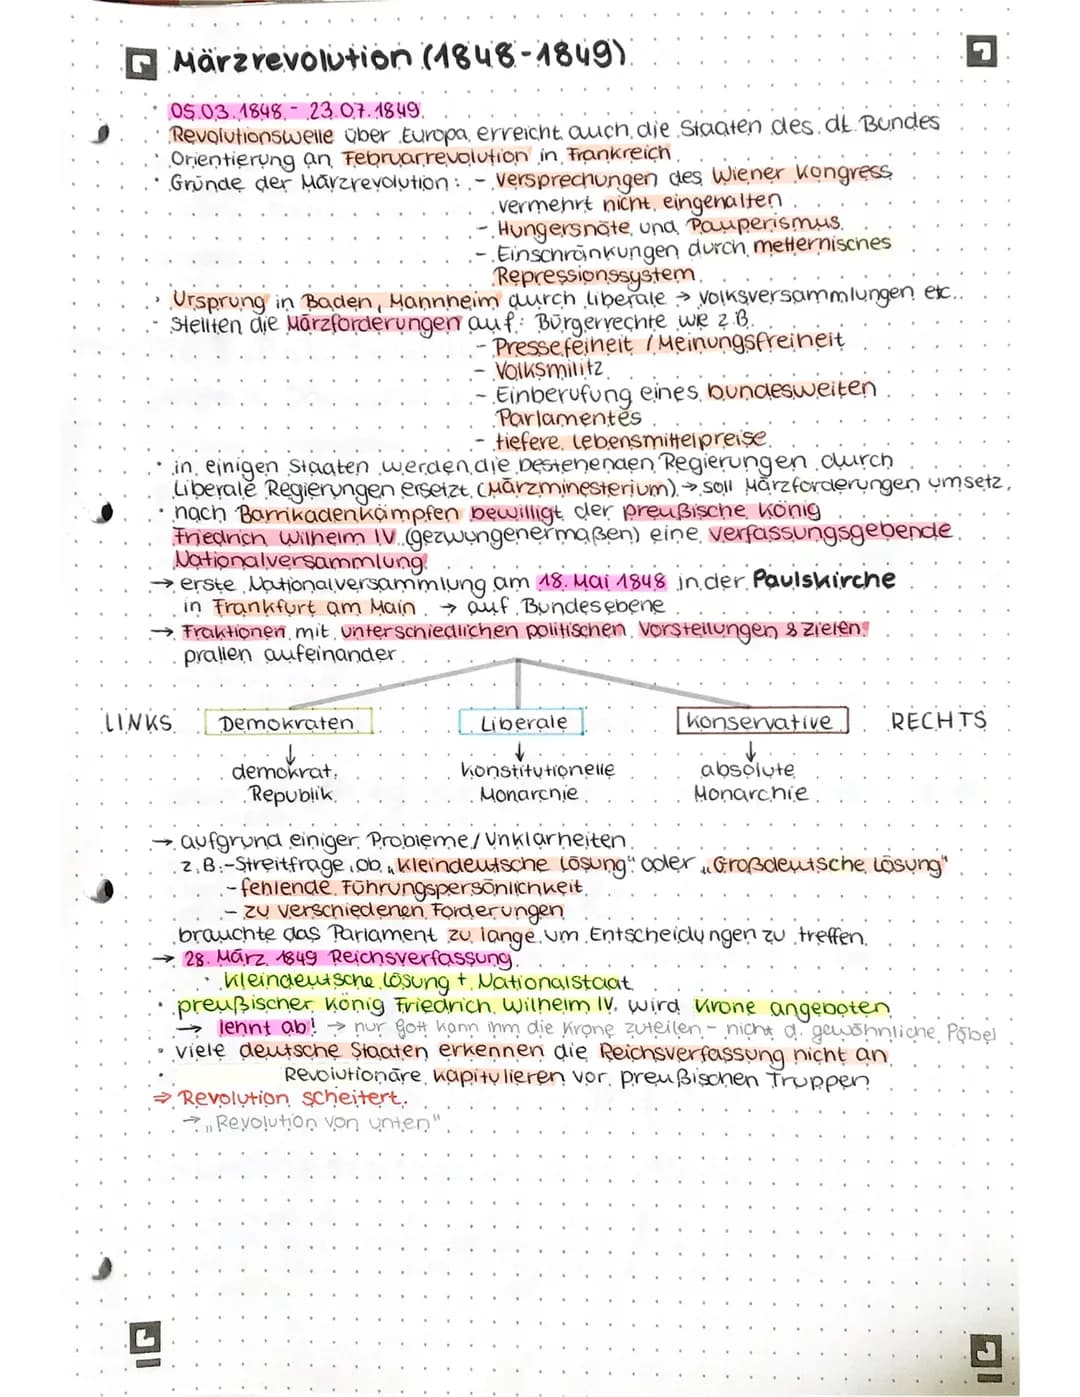 Märzrevolution (1848-1849)
· 05.03.1848 - 23.07.1849
· Revolutionswelle über Europa, erreicht auch die Staaten des dt. Bundes
· Orientierung an Februarrevolution in Frankreich
· Gründe der Märzrevolution: - Versprechungen des Wiener Kongress
vermehrt nicht eingehalten
- Hungersnöte und Pauperismus
- Einschränkungen durch metternisches
Repressionssystem
· Ursprung in Baden, Mannheim durch liberale → Volksversammlungen etc..
· Stellten die Märzforderungen auf: Bürgerrechte wie z.B.
- Pressefeiheit / Meinungsfreiheit
- Volksmilitz
- Einberufung eines bundesweiten
Parlamentes
- tiefere Lebensmittelpreise
· in einigen Staaten werden die bestehenden Regierungen durch
Liberale Regierungen ersetzt (Märzminesterium) → soll Märzforderungen umsetz.
· nach Barrikadenkämpfen bewilligt der preußische König
Friedrich Wilhelm IV. (gezwungenermaßen) eine verfassungsgebende
Nationalversammlung!
→ erste Nationalversammlung am 18. Mai 1848 in der Paulskirche
in Frankfurt am Main → auf Bundesebene
→ Fraktionen mit unterschiedlichen politischen Vorstellungen & Zielen!
prallen aufeinander
LINKS Demokraten Liberale Konservative RECHTS
↓ ↓ ↓
demokrat. konstitutionelle absolute
Republik Monarchie Monarchie
→ aufgrund einiger Probleme/Unklarheiten
z.B.: - Streitfrage, ob „kleindeutsche Lösung" oder „Großdeutsche Lösung"
- fehlende Führungspersönlichkeit
- zu verschiedenen Forderungen
brauchte das Parlament zu lange um Entscheidungen zu treffen.
→ 28. März 1849 Reichsverfassung
· kleindeutsche Lösung + Nationalstaat
· preußischer König Friedrich Wilhelm IV. wird Krone angeboten
→ lehnt ab! → nur Gott kann ihm die Krone zuteilen - nicht d. gewöhnliche Pöbel
· viele deutsche Staaten erkennen die Reichsverfassung nicht an
· Revolutionäre kapitulieren vor preußischen Truppen
⇒ Revolution scheitert.
→ „Revolution von unten"